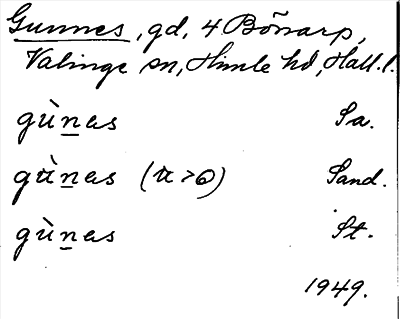 Gunnes, gd, 4 Bõnarp,
Valinge sn, Himle hd, Hall. l.
gùn̲as Sa.
gùn̲as (u > o) Sand.
gùn̲as St.
1949.